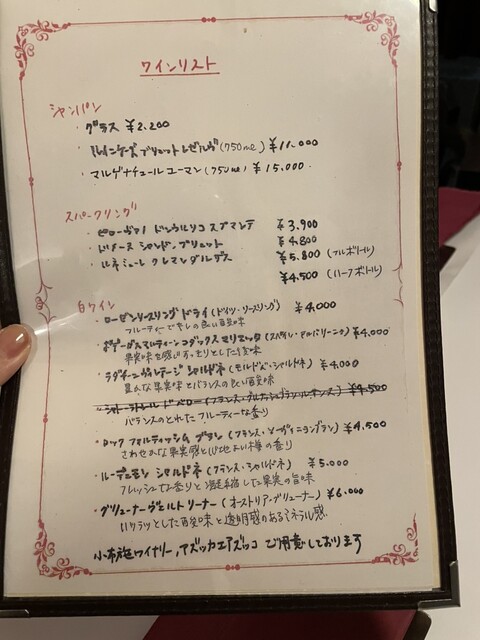 ワインリスト
シャンパン
・グラス ¥2,200
・ブリュットレゼルヴ(750ml) ¥11,000
・マルゲナチュールユーマン(750ml) ¥15,000
スパークリング
・ピローヴァノ ドルクルソコ スプマンテ ¥3,900
・ドメーヌ シャンドン ブリュット ¥4,800
・ルネミューレ クレマンダルザス ¥5,800 (フルボトル)
¥4,500 (ハーフボトル)
白ワイン
・ローゼンリースリング ドライ(ドイツ・リースリング) ¥4,000
フルーティーでキレの良い酸味
・ボデーガスマルティーンコダックス マリエッタ(スペイン・アルバリーニョ) ¥4,000
果実味を感じすっきりとした味
・ラダチーニヴィンテージ シャルドネ(モルドバ・シャルドネ) ¥4,000
豊かな果実味とバランスの良い酸味
¥4,500
バランスのとれたフルーティーな香り
・ロック フォルティッシム ブラン(フランス・ソーヴィニヨンブラン) ¥4,500
さわやかな果実感と心地よい樽の香り
・ルーデュモン シャルドネ(フランス・シャルドネ) ¥5,000
フレッシュな香りと凝縮した果実の旨味
・グリューナーヴェルトリーナー(オーストリア・グリューナー) ¥6,000
いクラッとした酸味と透明感のあるミネラル感
小布施ワイナリー、アズッカエアズッコ ご用意しております